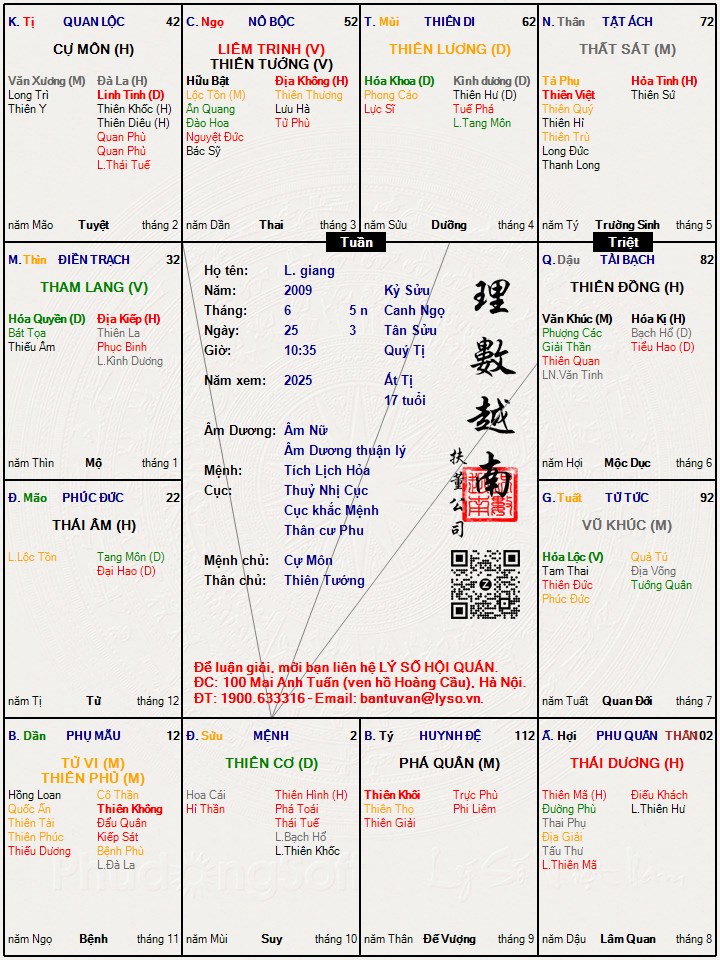 K. Tị QUAN LỘC 42
CỰ MÔN (H)
Văn Xương (M)
Long Trì
Thiên Y
Đà La (H)
Linh Tinh (D)
Thiên Khốc (H)
Thiên Diêu (H)
Quan Phù
Quan Phủ
L.Thái Tuế
năm Mão Tuyệt tháng 2
C. Ngọ NÔ BỘC 52
LIÊM TRINH (V)
THIÊN TƯỚNG (V)
Hữu Bật
Lộc Tồn (M)
Ân Quang
Đào Hoa
Nguyệt Đức
Bác Sỹ
Địa Không (H)
Thiên Thương
Lưu Hà
Tử Phù
năm Dần Thai tháng 3
T. Mùi THIÊN DI 62
THIÊN LƯƠNG (D)
Hóa Khoa (D)
Phong Cáo
Lực Sĩ
Kình dương (D)
Thiên Hư (D)
Tuế Phá
L.Tang Môn
năm Sửu Dưỡng tháng 4
N. Thân TẬT ÁCH 72
THẤT SÁT (M)
Tả Phụ
Thiên Việt
Thiên Quý
Thiên Hỉ
Thiên Trù
Long Đức
Thanh Long
Hỏa Tinh (H)
Thiên Sứ
năm Tý Trường Sinh tháng 5
Tuần
Triệt
M. Thìn ĐIỀN TRẠCH 32
THAM LANG (V)
Hóa Quyền (D)
Bát Tọa
Thiếu Âm
Địa Kiếp (H)
Thiên La
Phục Binh
L.Kình Dương
năm Thìn Mộ tháng 1
Họ tên: L. giang
Năm: 2009 Kỷ Sửu
Tháng: 6 5 n Canh Ngọ
Ngày: 25 3 Tân Sửu
Giờ: 10:35 Quý Tị
Năm xem: 2025 Ất Tị
17 tuổi
Âm Dương: Âm Nữ
Âm Dương thuận lý
Mệnh: Tích Lịch Hỏa
Cục: Thuỷ Nhị Cục
Cục khắc Mệnh
Thân cư Phu
Mệnh chủ: Cự Môn
Thân chủ: Thiên Tướng
理數越南
扶董公司
Để luận giải, mời bạn liên hệ LÝ SỐ HỘI QUÁN.
ĐC: 100 Mai Anh Tuấn (ven hồ Hoàng Cầu), Hà Nội.
ĐT: 1900.633316 - Email: bantuvan@lyso.vn.
Q. Dậu TÀI BẠCH 82
THIÊN ĐỒNG (H)
Văn Khúc (M)
Phượng Các
Giải Thần
Thiên Quan
LN.Văn Tinh
Hóa Kị (H)
Bạch Hổ (D)
Tiểu Hao (D)
năm Hợi Mộc Dục tháng 6
Đ. Mão PHÚC ĐỨC 22
THÁI ÂM (H)
L.Lộc Tồn
Tang Môn (D)
Đại Hao (D)
năm Tị Tử tháng 12
G. Tuất TỬ TỨC 92
VŨ KHÚC (M)
Hóa Lộc (V)
Tam Thai
Thiên Đức
Phúc Đức
Quả Tú
Địa Võng
Tướng Quân
năm Tuất Quan Đới tháng 7
B. Dần PHỤ MẪU 12
TỬ VI (M)
THIÊN PHỦ (M)
Hồng Loan
Quốc Ấn
Thiên Tài
Thiên Phúc
Thiếu Dương
Cô Thần
Thiên Không
Đẩu Quân
Kiếp Sát
Bệnh Phù
L.Đà La
năm Ngọ Bệnh tháng 11
Đ. Sửu MỆNH 2
THIÊN CƠ (D)
Hoa Cái
Hỉ Thần
Thiên Hình (H)
Phá Toái
Thái Tuế
L.Bạch Hổ
L.Thiên Khốc
năm Mùi Suy tháng 10
B. Tý HUYNH ĐỆ 112
PHÁ QUÂN (M)
Thiên Khôi
Thiên Thọ
Thiên Giải
Trực Phù
Phi Liêm
năm Thân Đế Vượng tháng 9
Ấ. Hợi PHU QUÂN THÂN 102
THÁI DƯƠNG (H)
Thiên Mã (H)
Đường Phù
Thai Phụ
Địa Giải
Tấu Thư
L.Thiên Mã
Điếu Khách
L.Thiên Hư
năm Dậu Lâm Quan tháng 8